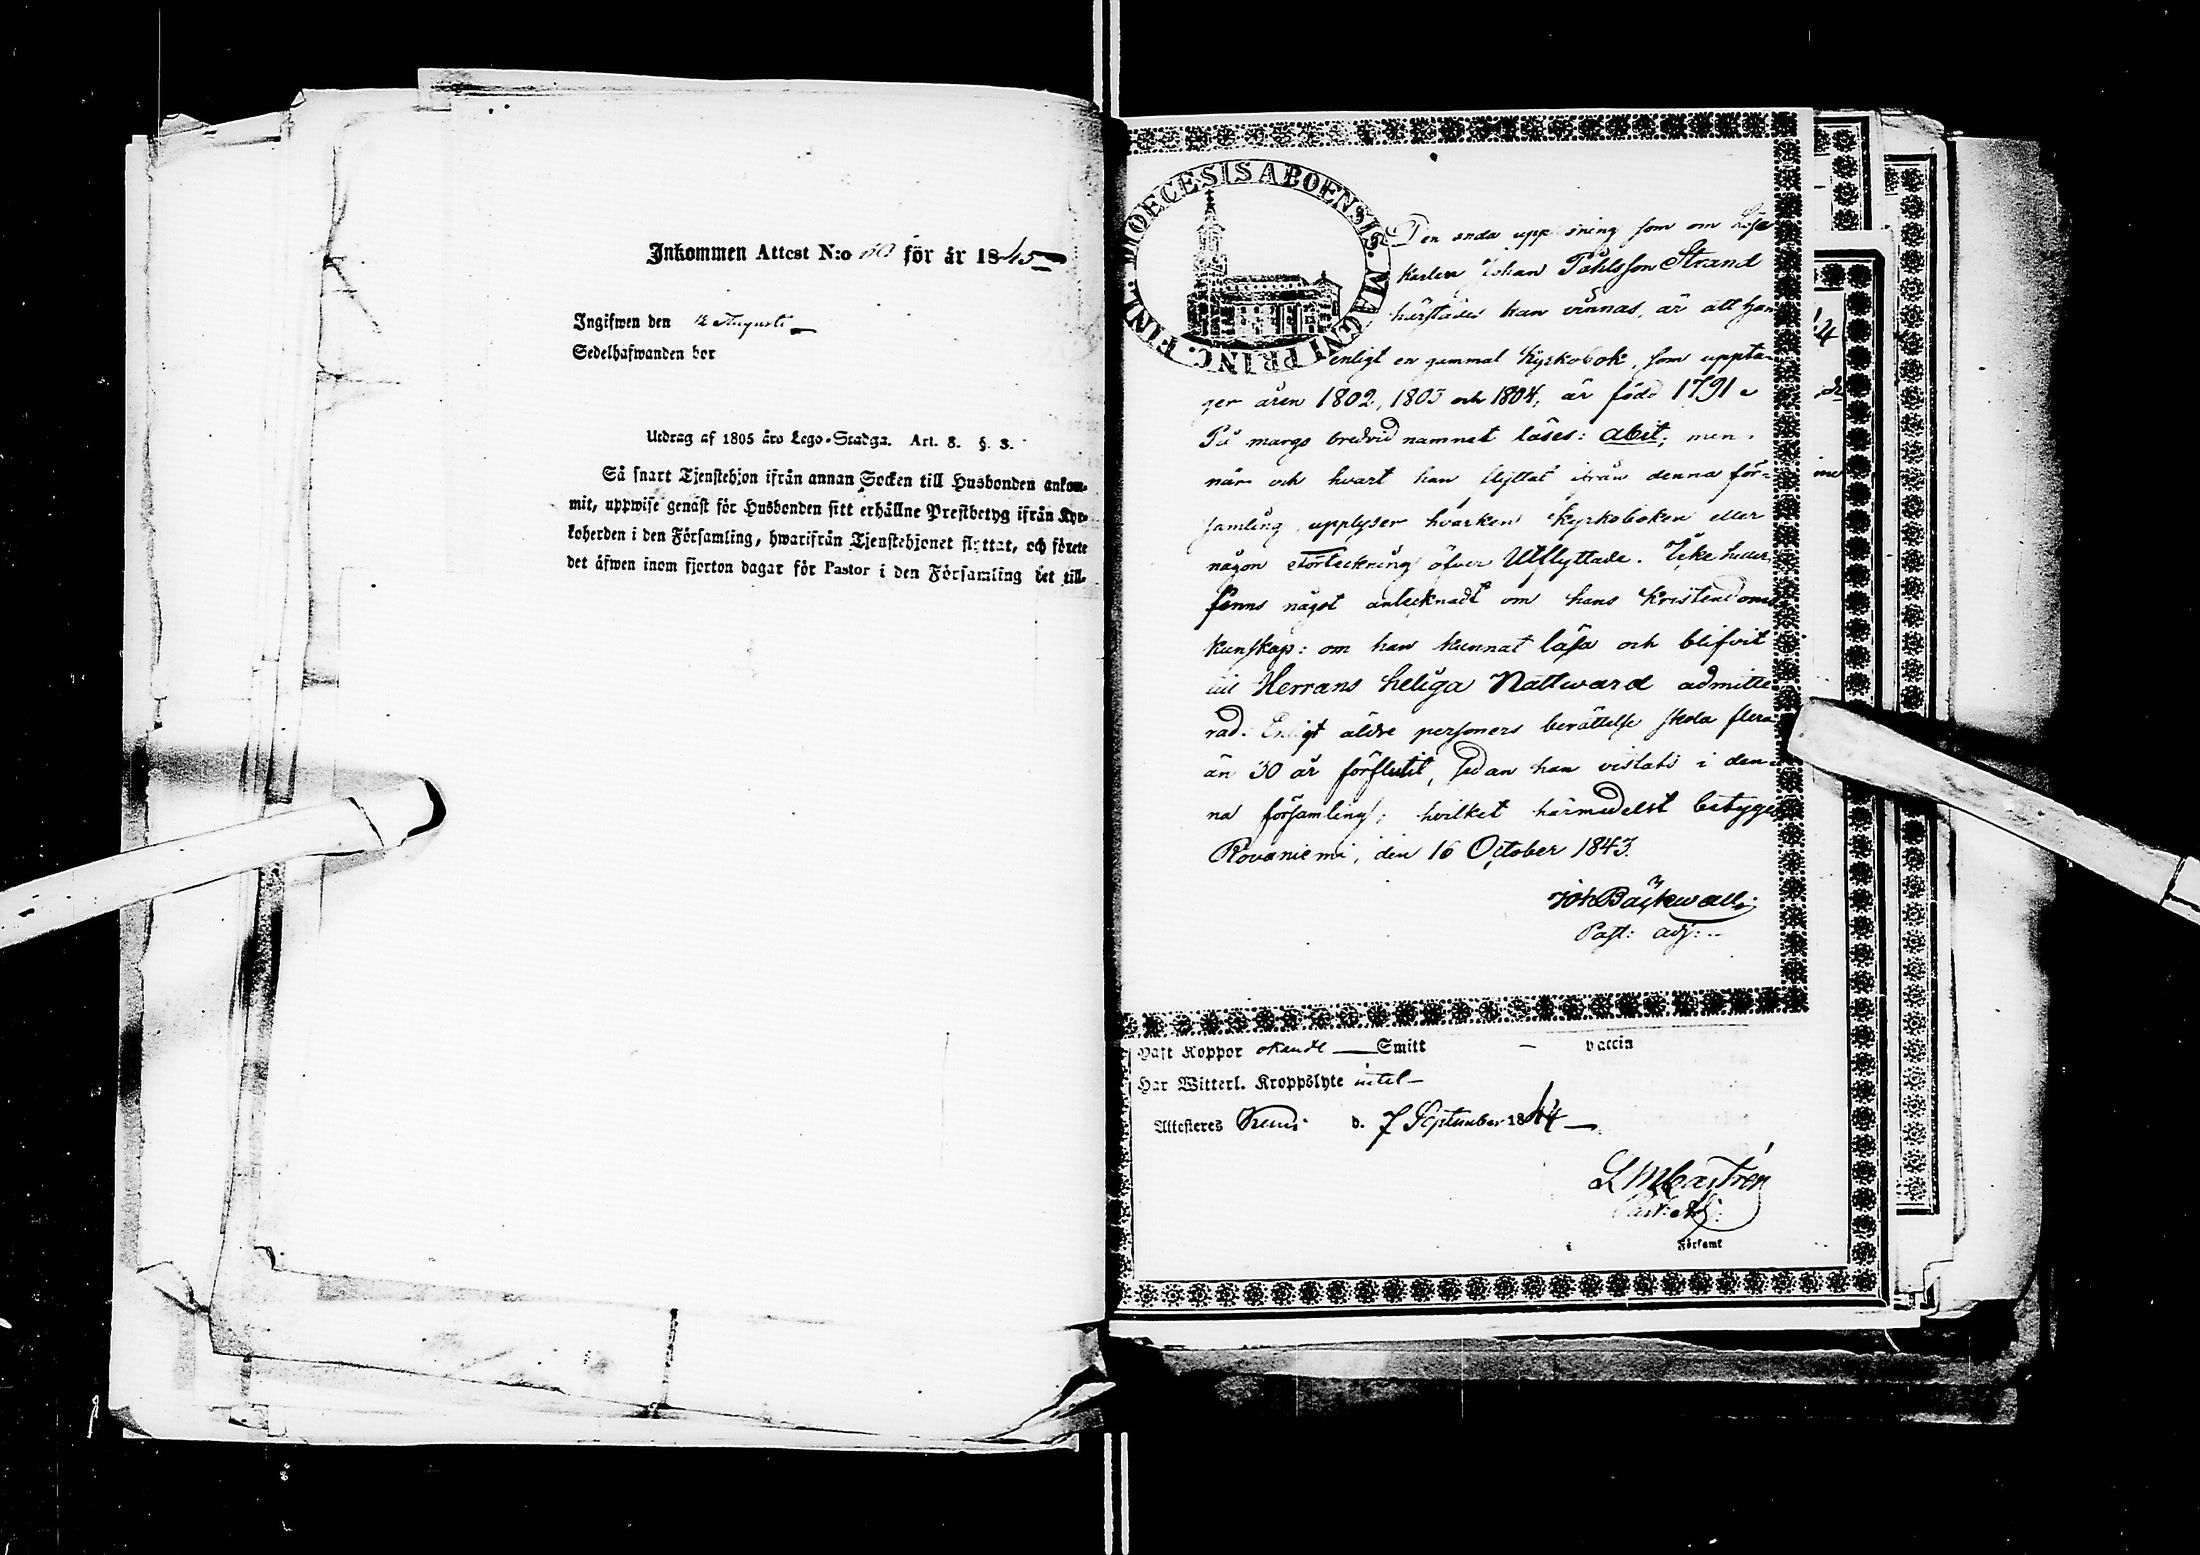 Inkommen Attest N:o för år 1845
Ingifwen den 12 Augusti
Sedelhafwanden bor
Utdrag af 1805 åro Lego-Stadga. Art. 8. §. 3.
Så snart Tjenstehjon ifrån annan Socken till Husbonden ankom-
mit, uppwise genast för Husbonden sitt erhållne Prestbetyg ifrån Kyr-
koherden i den Församling, hwarifrån Tjenstehjonet flyttat, och förete
det äfwen inom fjorton dagar för Pastor i den Församling det till-
DIOECESIS ABOENSIS. MAGNI PRINC. FINL.
Den enda upplysning som om Lösa
karlen Johan Påhlsson Strand
härstädes kan vinnas, är att han
enligt en gammal Kyrkobok, som uppta-
ger åren 1802, 1803 och 1804, är född 1791
På margo bredvid namnet läses: abiit; men
när och hvart han flyttat ifrån denna för-
samling, upplyser hvarken Kyrkoboken eller
någon Förteckning öfver Utflyttade. Icke heller
finns något antecknadt om hans Kristendoms
kunskap: om han kunnat läsa och blifvit
till Herrans heliga Nattward admitte-
rad. Enligt äldre personers berättelse skola flera
än 30 år förflutit, sedan han vistats i den-
na församling; hvilket härmedelst betygas
Rovaniemi, den 16 October 1843.
Joh Bäckwall
Past: adj:
Haft Koppor okändt Smitt — vaccin
Har Witterl. Kroppslyte intet
Attesteras Kemi d. 7 September 1844
L M Castrén
Past: Adj:
Församl